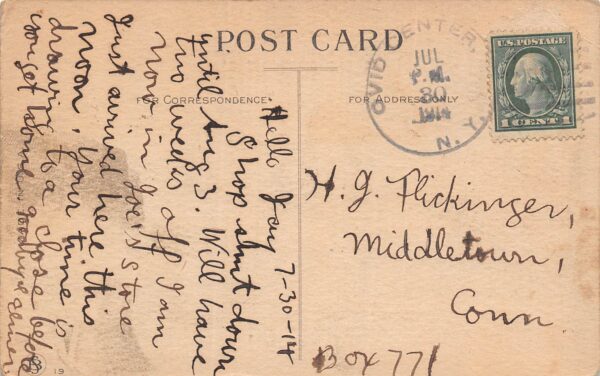 POST CARD
FOR CORRESPONDENCE
FOR ADDRESS ONLY
OVID CENTER,
JUL
P.M.
30
1914
N. Y.
U.S. POSTAGE
1 CENT 1
H. J. Flickinger,
Middletown,
Conn.
Box 771
7-30-14
Hello Jay
Shop shut down
until Aug 3. Will have
two weeks
now in off I am
Joe's store
Just arrived here this
noon, is your time is
drawing to a close before
you get some, goodbye
19